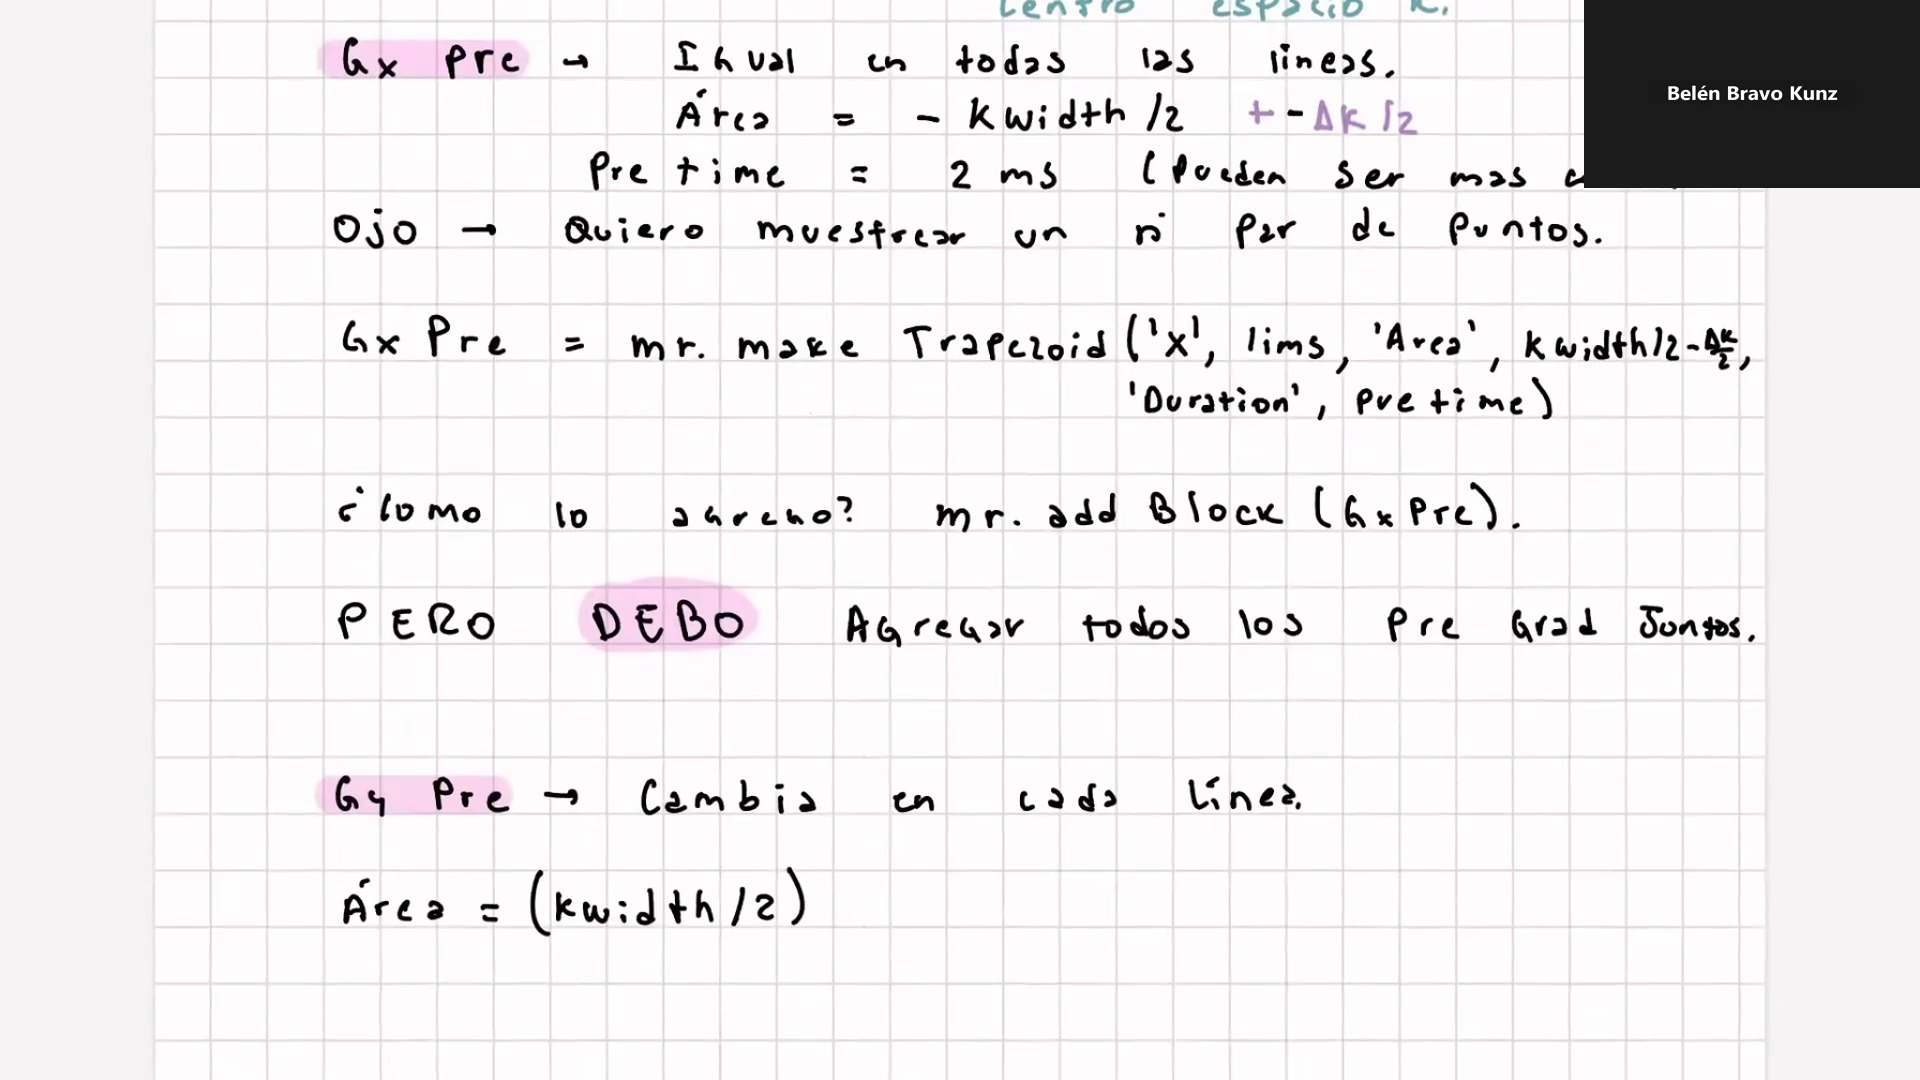 centro espacio k.
Gx Pre → Igual en todas las lineas.
Belén Bravo Kunz
Área = - Kwidth /2 + - ΔK/2
Pre time = 2 ms (Pueden ser mas
Ojo → Quiero muestrear un n° Par de Puntos.
Gx Pre = mr. make Trapezoid ('x', lims, 'Area', kwidth/2-Δk/2,
'Duration', pretime)
¿Como lo agrego? mr. add Block (Gx Pre).
PERO DEBO AGregar todos los Pre Grad Juntos.
Gy Pre → Cambia en cada Línea.
Área = (kwidth/2)